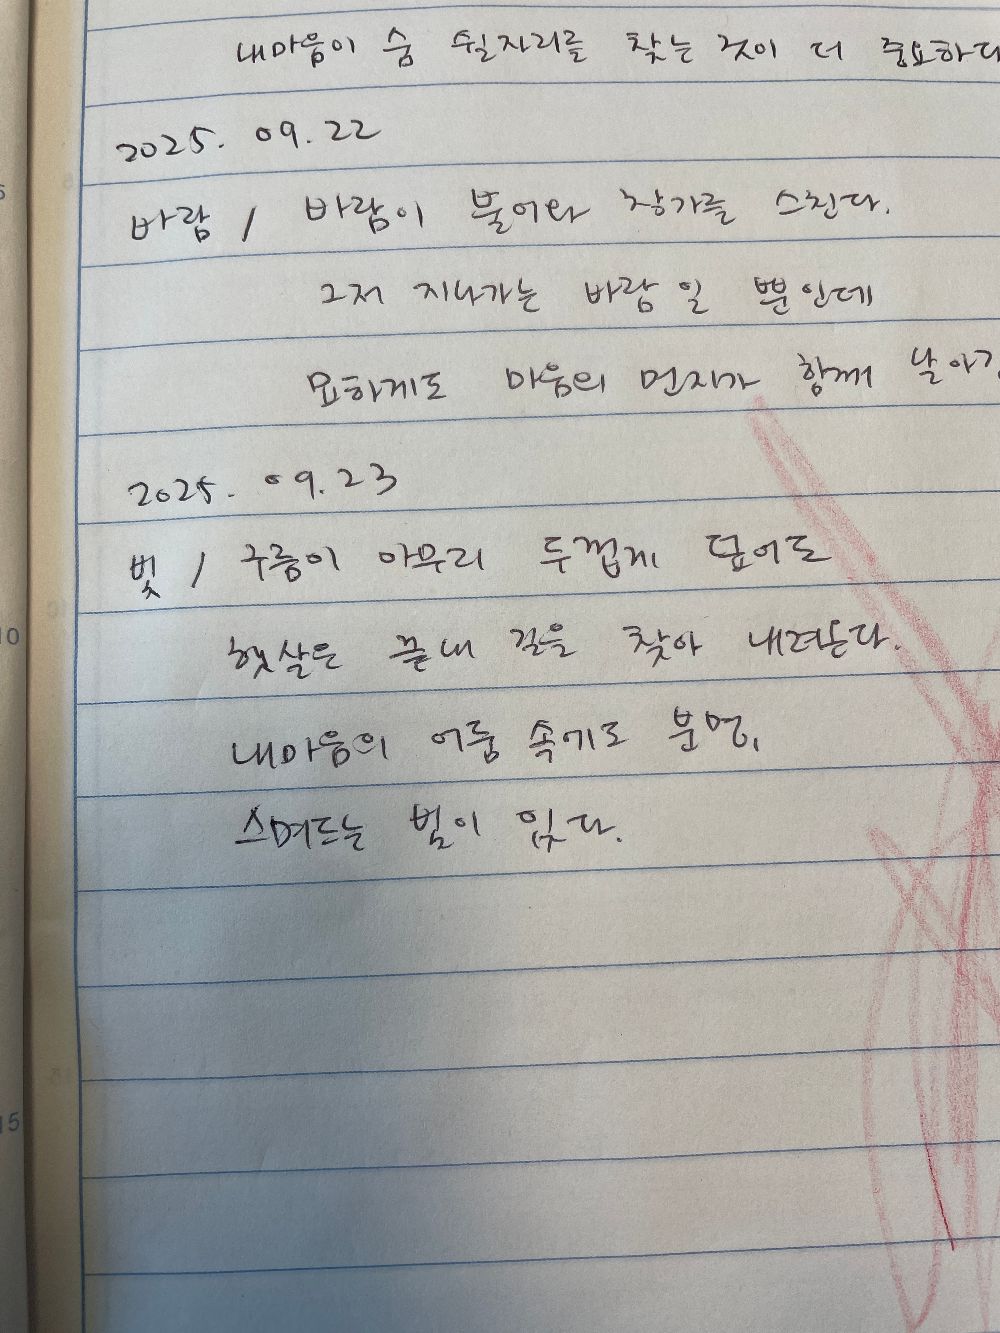 내마음이 숨 쉴자리를 찾는 것이 더 중요하다
2025. 09. 22
바람 / 바람이 불어와 창가를 스친다.
그저 지나가는 바람일 뿐인데
묘하게도 마음의 먼지가 함께 날아가
2025. 09. 23
빛 / 구름이 아무리 두껍게 덮어도
햇살은 끝내 길을 찾아 내려온다.
10
내마음의 어둠 속에도 분명,
스며드는 빛이 있다.
15